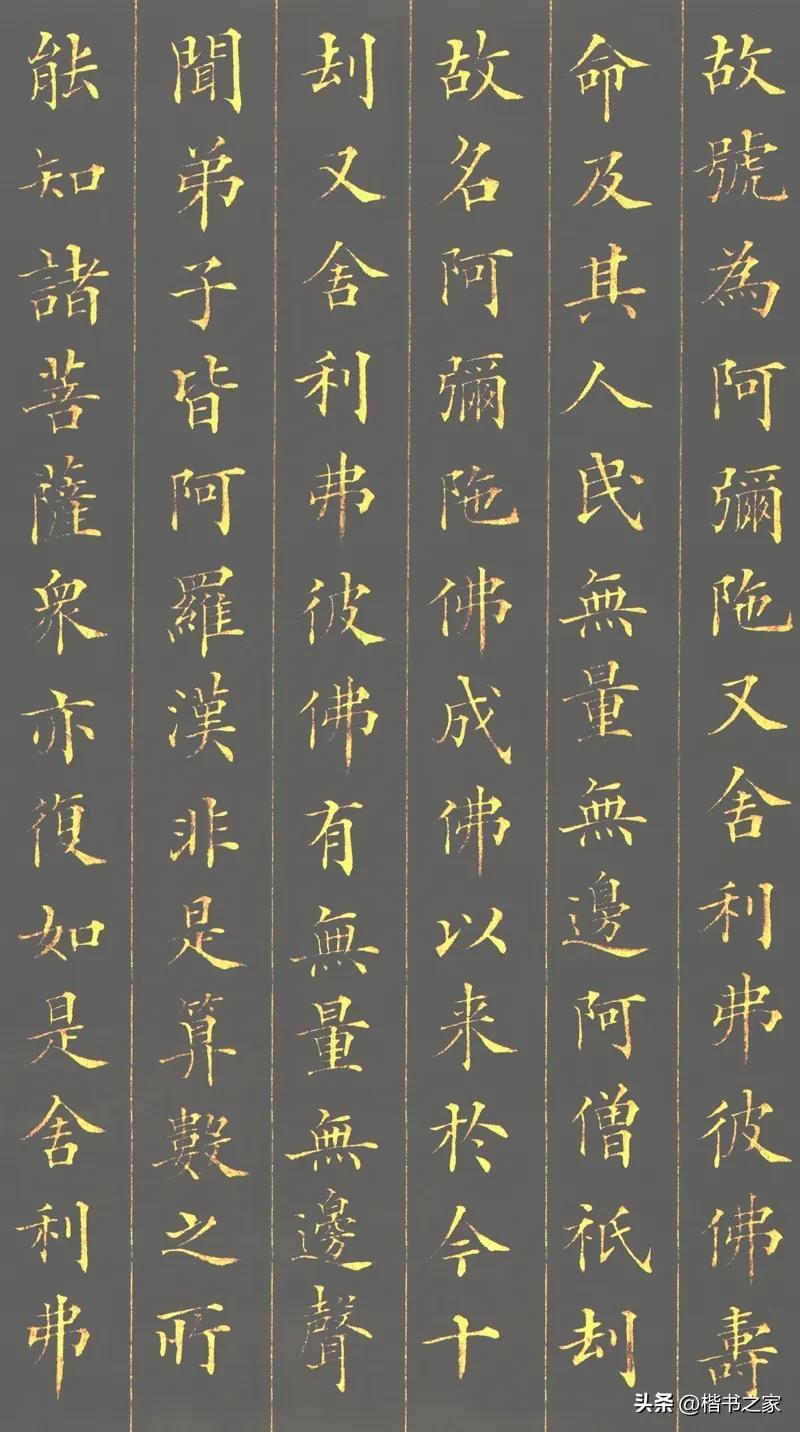 故號為阿彌陁又舍利弗彼佛壽
命及其人民無量無邊阿僧祇刦
故名阿彌陁佛成佛以来於今十
刦又舍利弗彼佛有無量無邊聲
聞弟子皆阿羅漢非是算數之所
能知諸菩薩衆亦復如是舍利弗
头条 @楷书之家